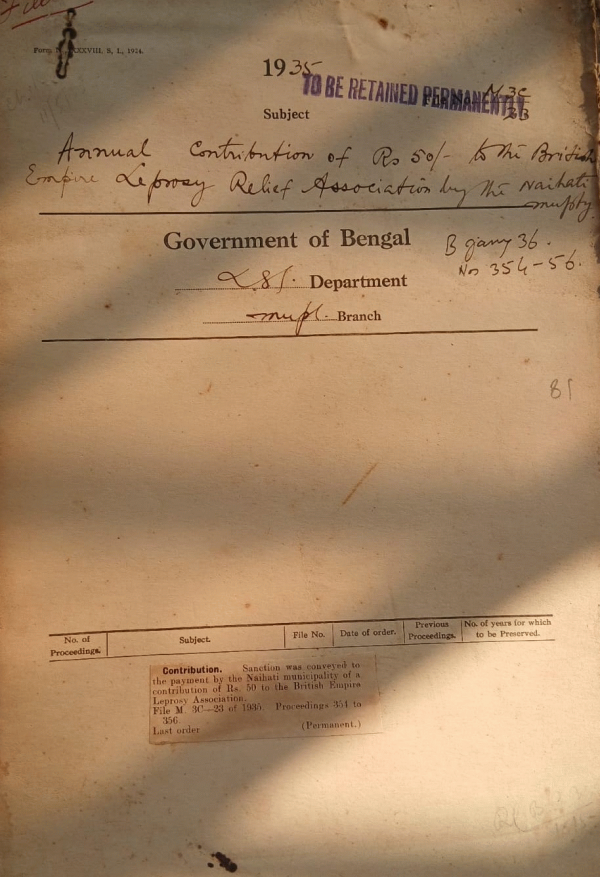 1935
TO BE RETAINED PERMANENTLY
M. 3C
23
Subject
Annual Contribution of Rs 50/- to the British
Empire Leprosy Relief Association by the Naihati
mupty.
Government of Bengal
B Jany 36.
Nos 354-56.
L.S.G. Department
mupl. Branch
81
No. of Proceedings. Subject. File No. Date of order. Previous Proceedings. No. of years for which to be Preserved.
Contribution. Sanction was conveyed to
the payment by the Naihati municipality of a
contribution of Rs. 50 to the British Empire
Leprosy Association.
File M. 3C—23 of 1935. Proceedings 354 to
356
Last order (Permanent.)